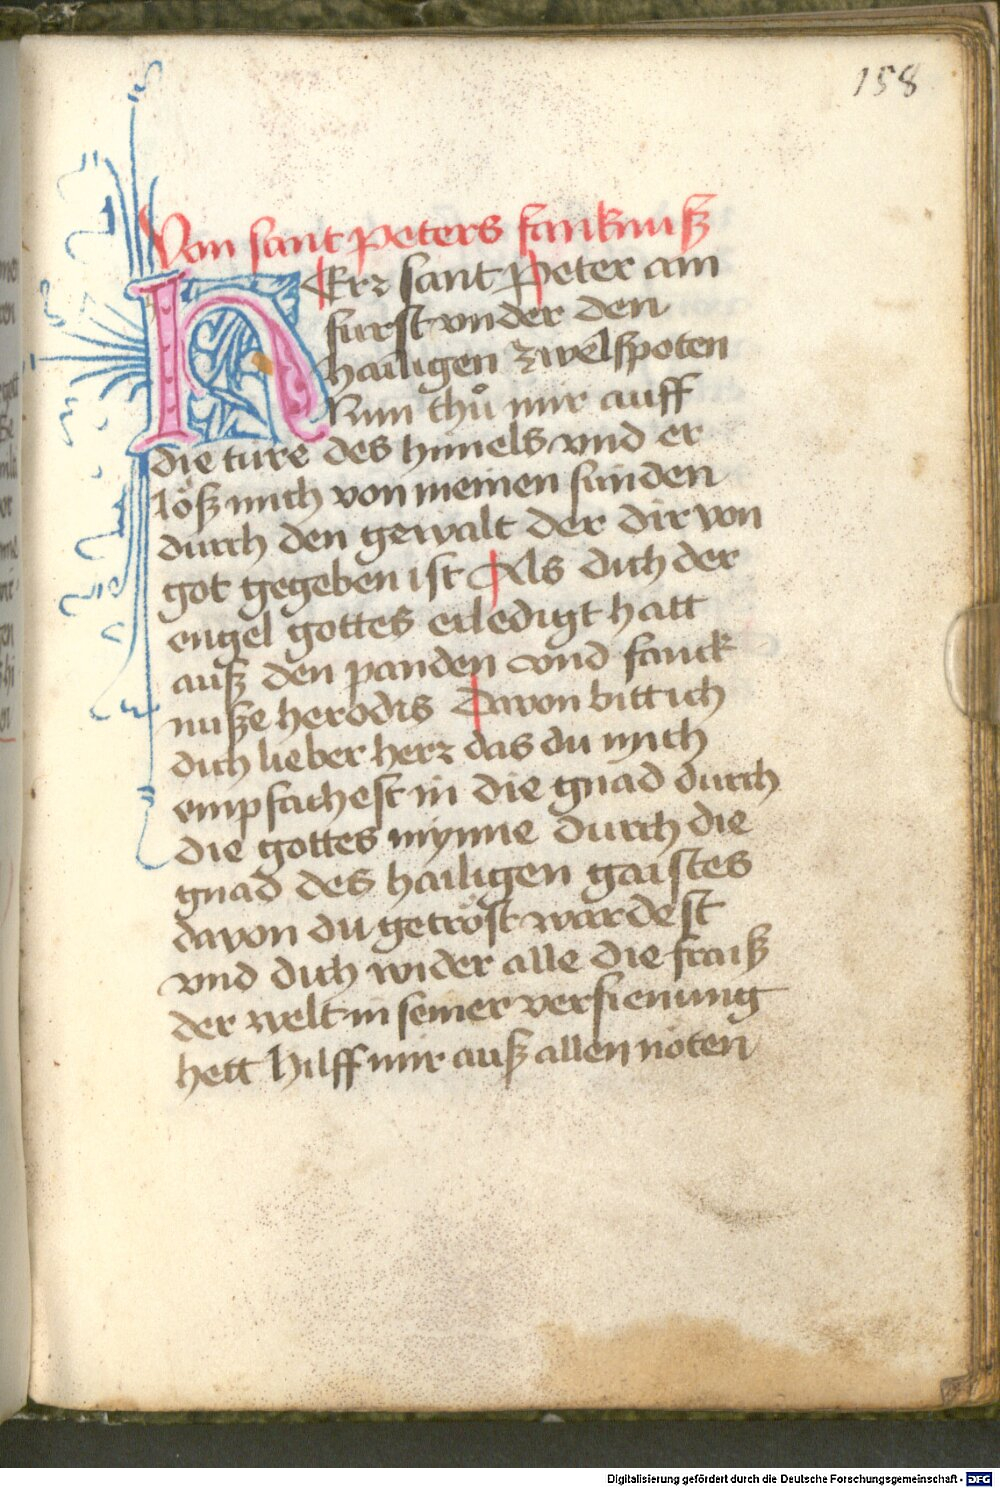 158
Von sant peters fanknuß
HErz sant Peter ain
furst vnder den
hailigen zwelfpoten
Kum thů mir auff
die ture des himels vnd er
löß mich von meinen sunden
durch den gewalt der dir von
got gegeben ist Als dich der
engel gottes erledigt hatt
auß den panden vnd fanck
nuße herodis Davon bitt ich
dich lieber herz das du mich
empfachest in die gnad durch
die gottes mynne durch die
gnad des hailigen gaistes
davon du getröst wardest
vnd dich wider alle die fraiß
der welt in seiner versienung
hett Hilff mir auß allen nöten
Digitalisierung gefördert durch die Deutsche Forschungsgemeinschaft - DFG